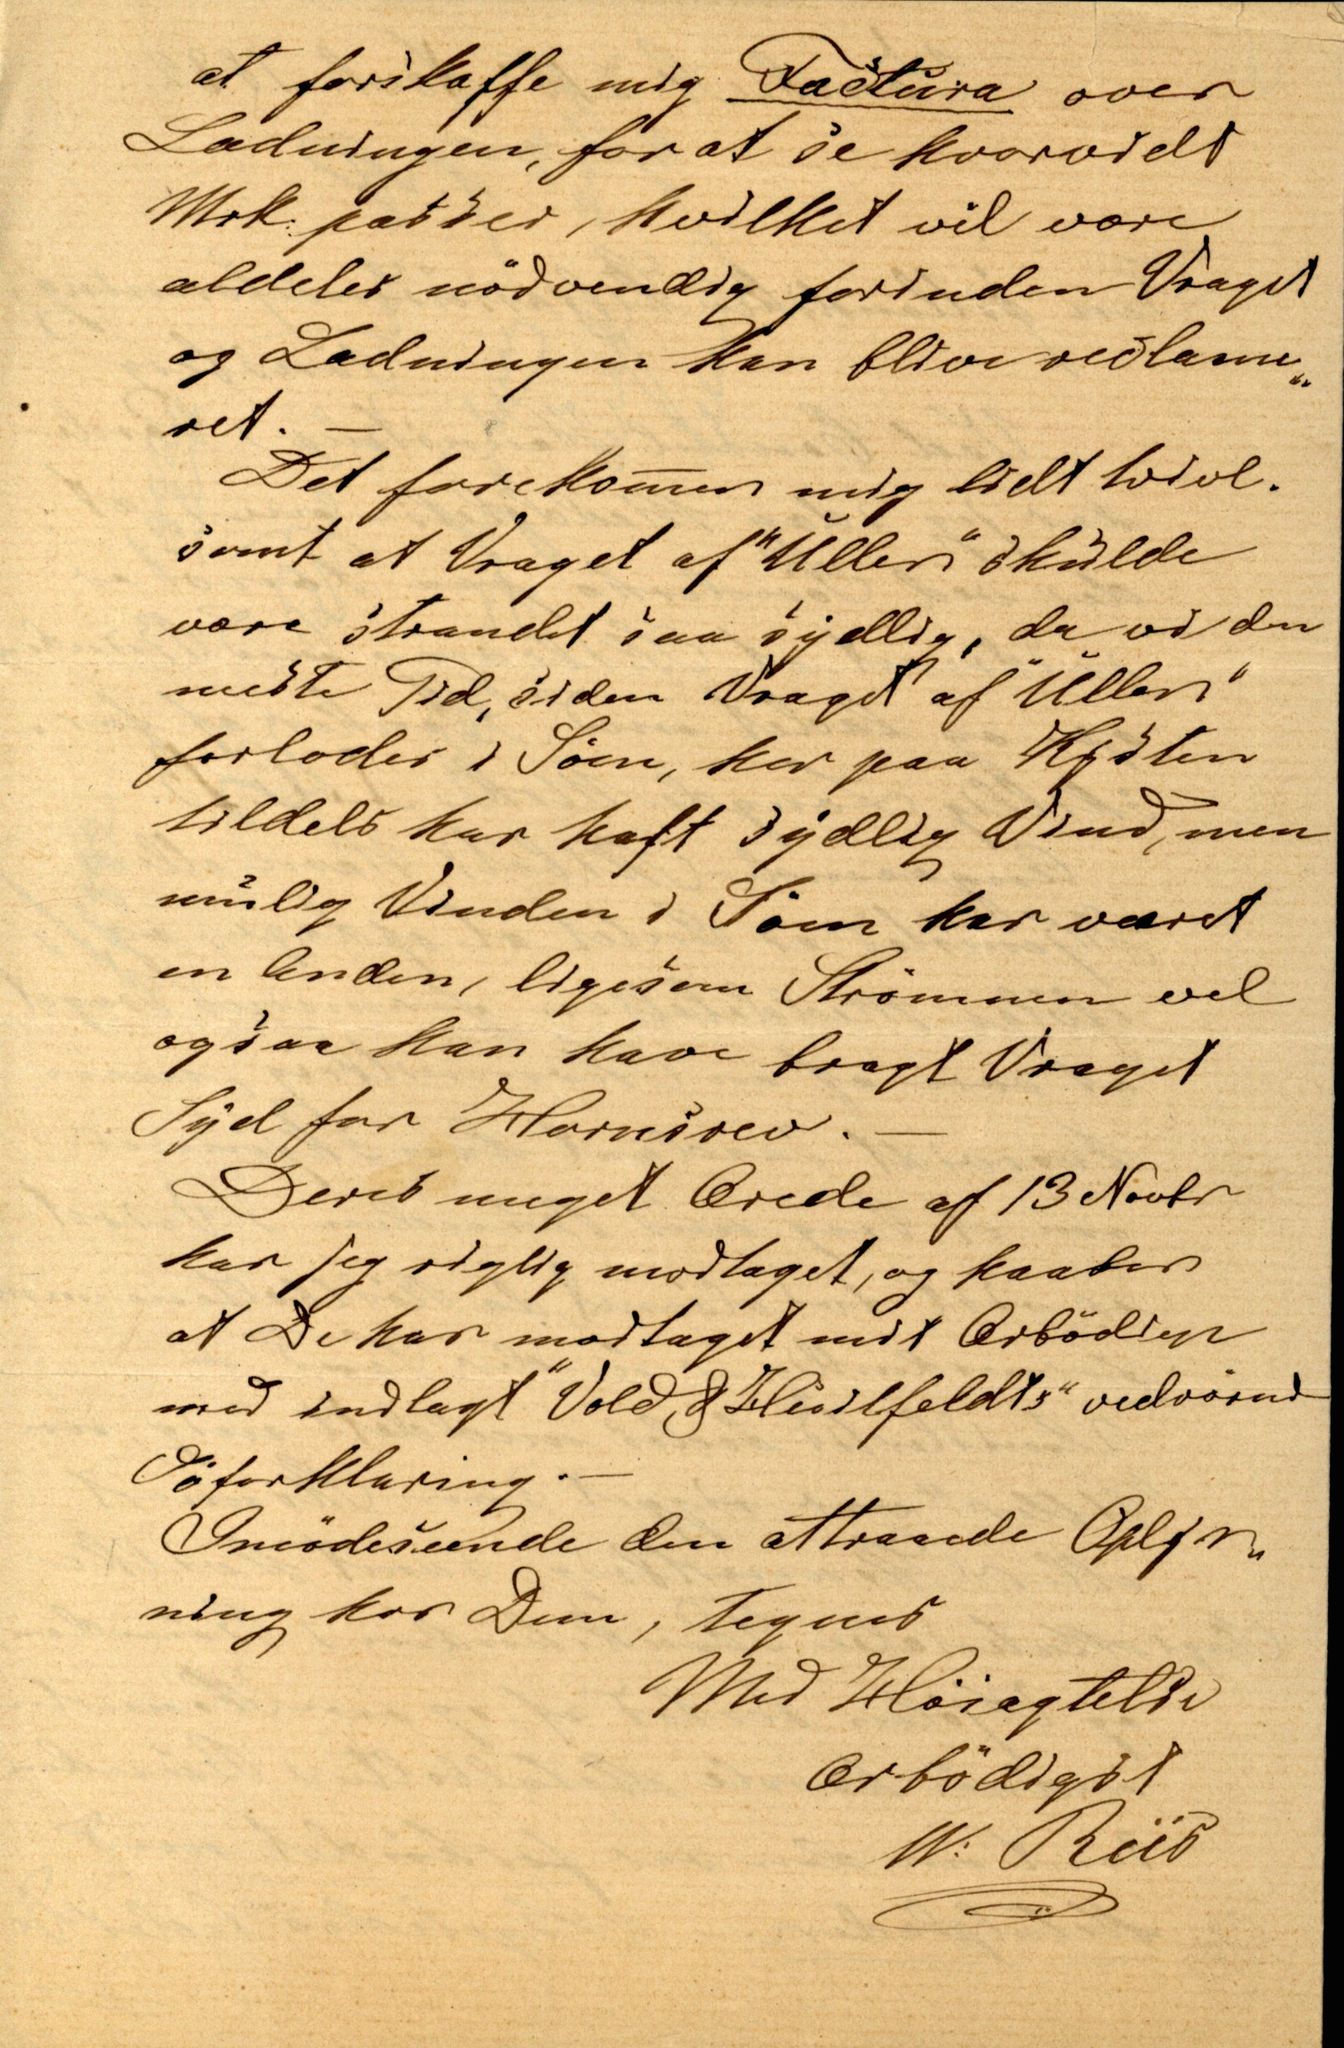 at forskaffe mig Factura over
Ladningen, for at se hvorvidt
Mrk: passer, hvilket vil være
aldeles nödvendig forinden Vraget
og Ladningen kan blive reclame„
ret. —
Det forekommer mig lidt tvivl.
somt at Vraget af "Uller" skulde
være strandet saa sydlig, da vi den
meste Tid, siden Vraget af "Uller"
forlodes i Söen, her paa Kysten
tildels har haft sydlig Vind, men
mulig Vinden i Söen har været
en Anden, ligesom Strömmen vel
ogsaa kan have bragt Vraget
Syd for Hornsrev. —
Deres meget Ærede af 13 Novbr
har jeg rigtig modtaget, og haaber
at De har modtaget mit Ærbödige
med indlagt "Vold & Huitfeldts" vedrörende
Söforklaring. —
Imödeseende den attraaede Oplys„
ning her Dem, tegnes
Med Höiagtelse
Ærbödigst
W. Riis